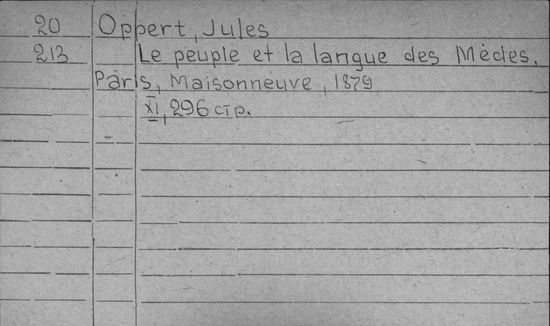 20 Oppert, Jules
213 Le peuple et la langue des Mèdes.
Paris, Maisonneuve, 1879
XI, 296 стр.